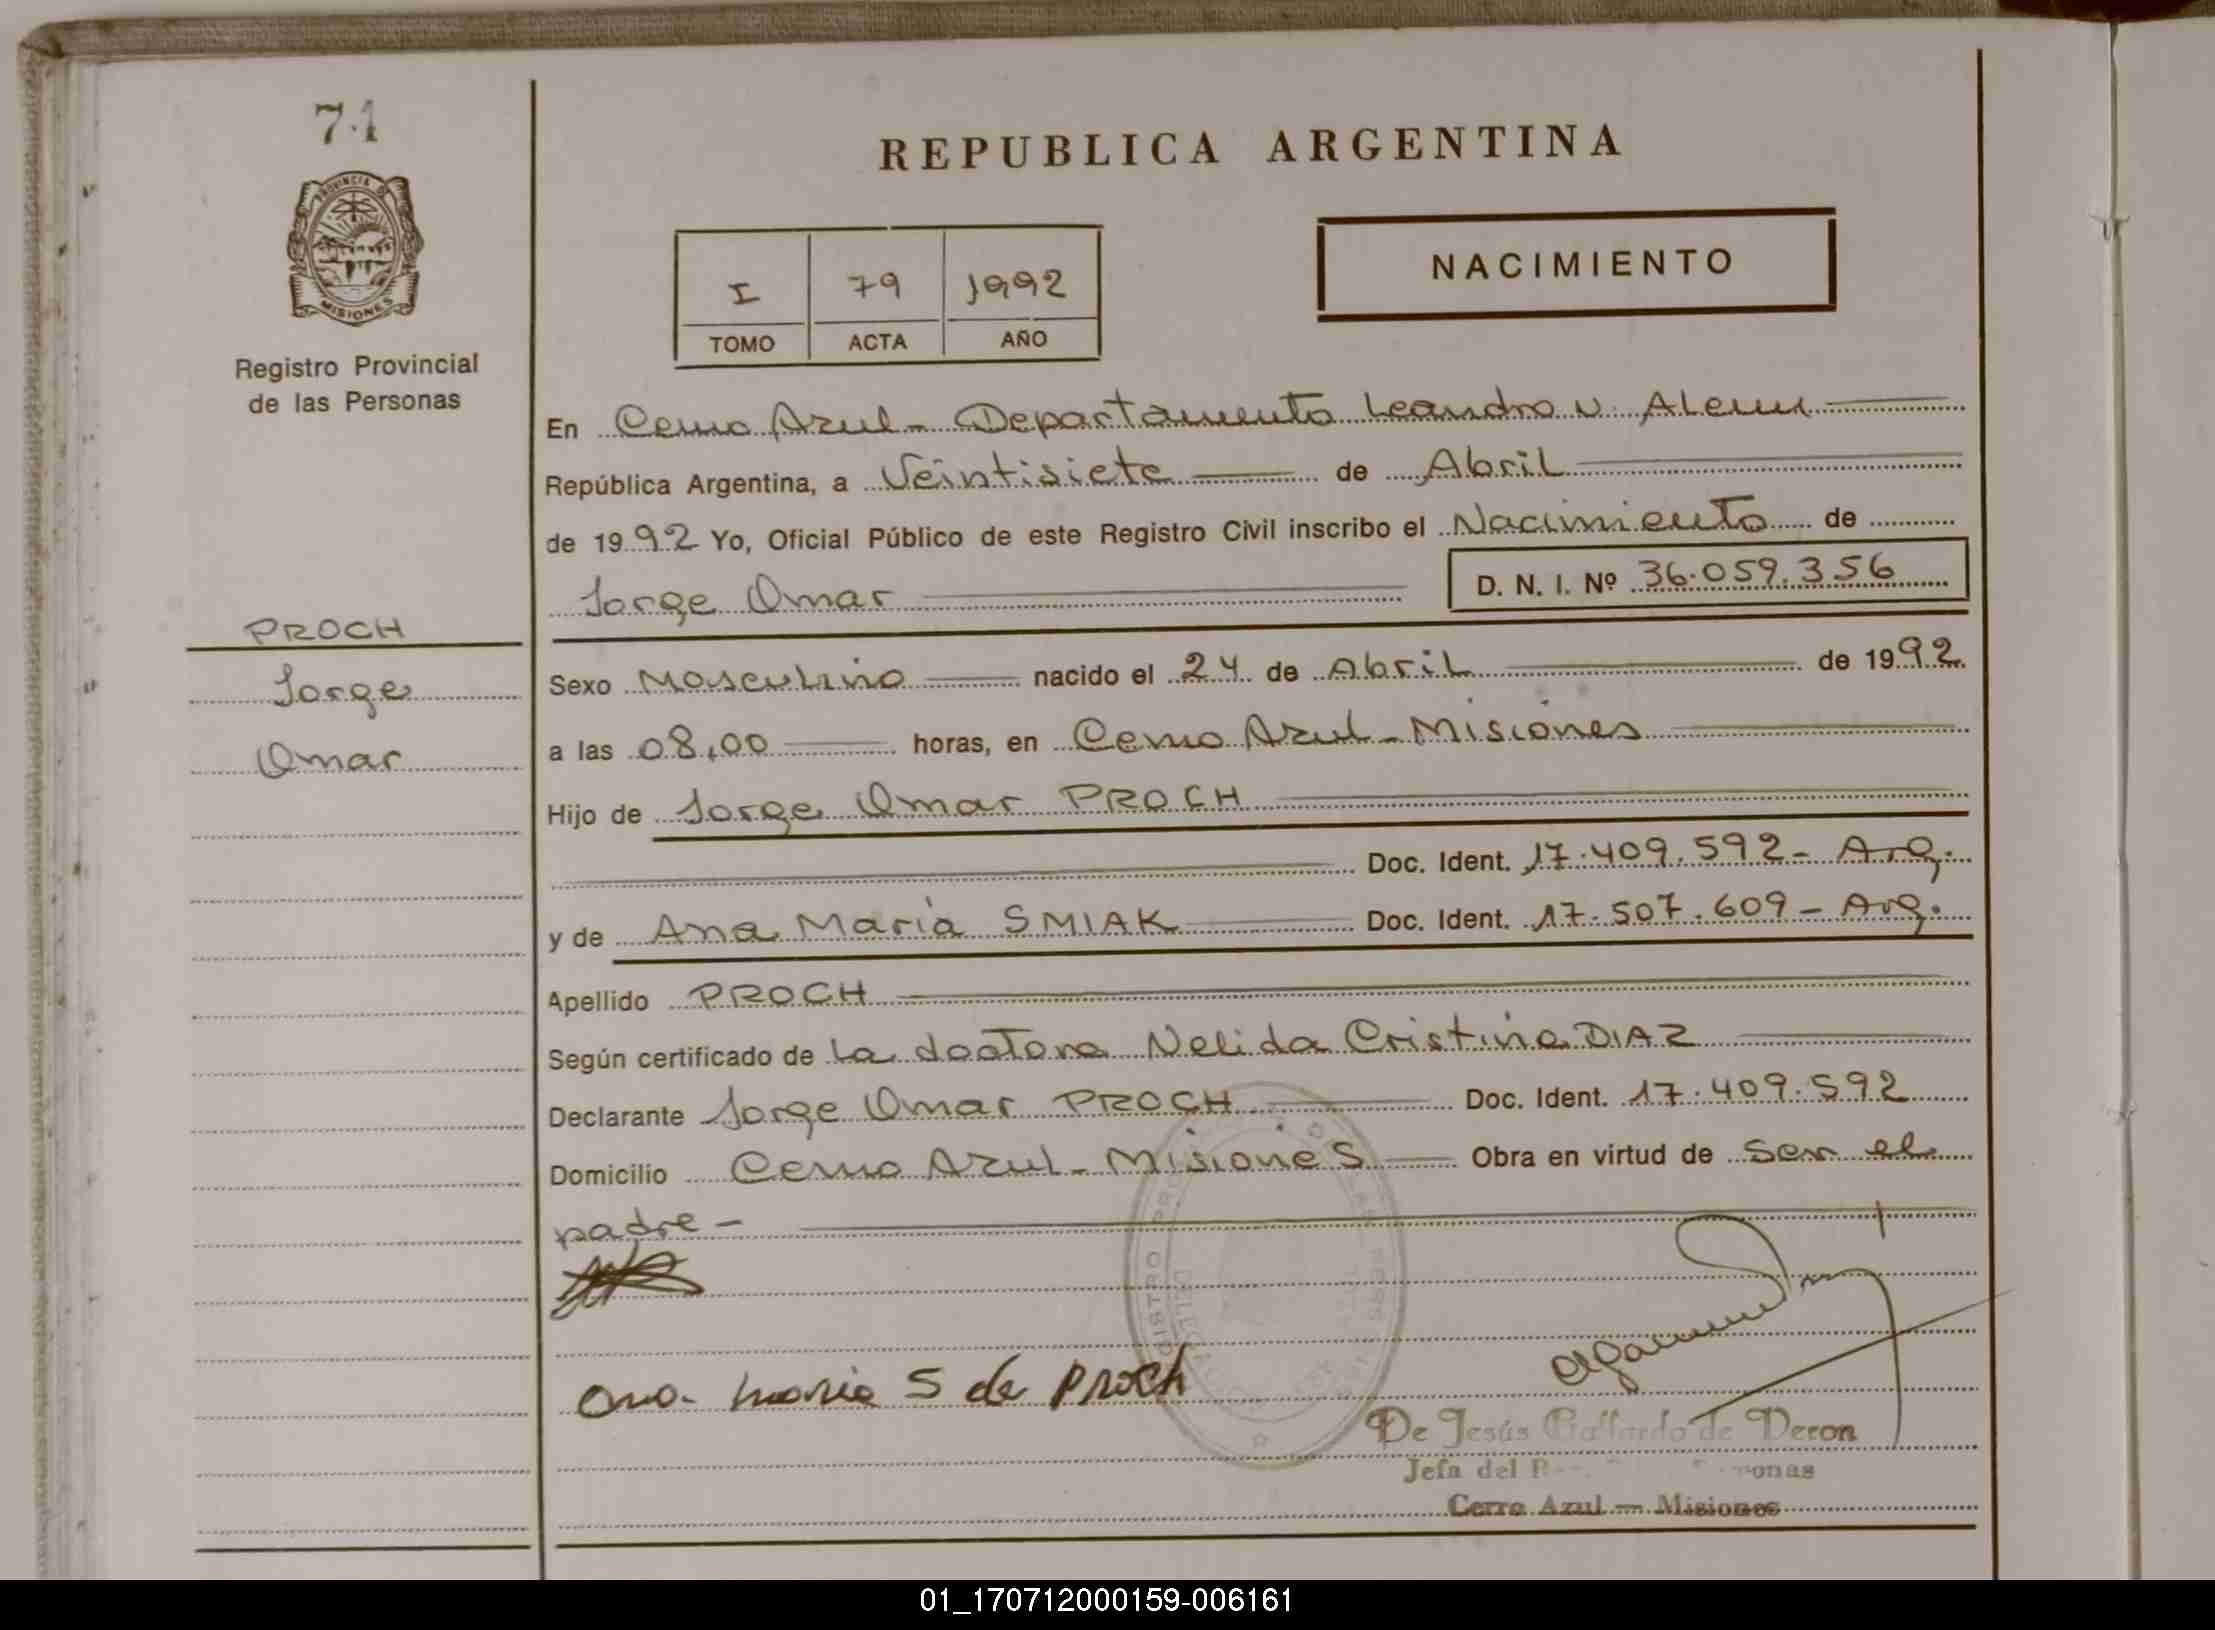 71
PROVINCIA DE
MISIONES
Registro Provincial
de las Personas
PROCH
Jorge
Omar
REPUBLICA ARGENTINA
I 79 1992
TOMO ACTA AÑO
NACIMIENTO
En Cerro Azul - Departamento Leandro N. Alem
República Argentina, a Veintisiete de Abril
de 1992 Yo, Oficial Público de este Registro Civil inscribo el Nacimiento de
Jorge Omar D. N. I. Nº 36.059.356
Sexo Masculino nacido el 24 de Abril de 1992.
a las 08,00 horas, en Cerro Azul - Misiones
Hijo de Jorge Omar PROCH
Doc. Ident. 17.409.592 - Arg.
y de Ana María SMIAK Doc. Ident. 17.507.609 - Arg.
Apellido PROCH
Según certificado de la doctora Nelida Cristina DIAZ
Declarante Jorge Omar PROCH Doc. Ident. 17.409.592
Domicilio Cerro Azul - Misiones Obra en virtud de ser el
padre -
Ana Maria S de Proch
De Jesús Gallardo de Veron
Jefa del
Cerro Azul — Misiones
01_170712000159-006161